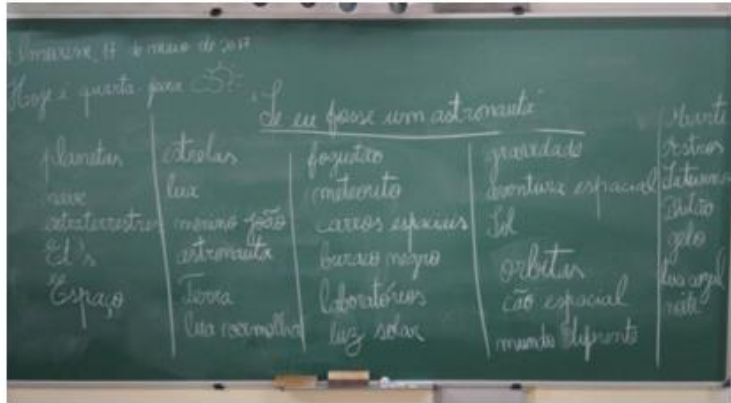 Almeirim, 17 de maio de 2017
Hoje é quarta-feira
"Se eu fosse um astronauta"
planetas
nave
extraterrestres
Et's
Espaço
estrelas
lua
menino João
astronauta
Terra
lua vermelha
foguetão
meteorito
carros espaciais
buraco negro
laboratórios
luz solar
gravidade
aventura espacial
Sol
orbitas
cão espacial
mundo diferente
Marte
rastros
Saturno
Plutão
gelo
lua azul
noite